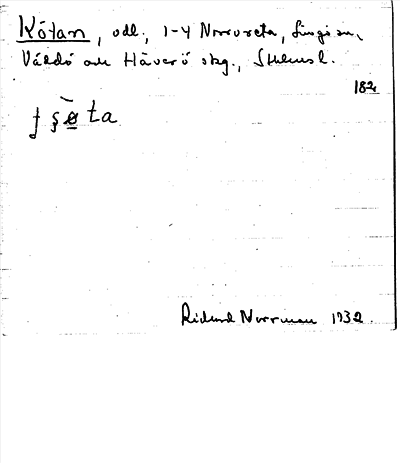 Kötan, odl., 1-4 Norrveta, Singö sn,
Väddö och Häverö skg., Sthlmsl.
182
Rickard Norrman 1932.